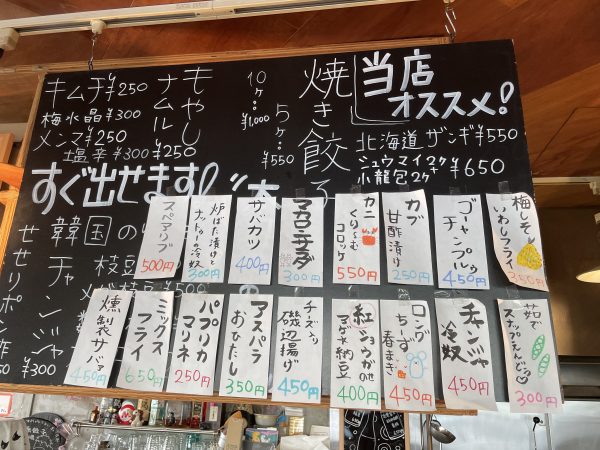 当店
オススメ!
焼き餃子
5ヶ…¥550
10ヶ…¥1,000
北海道ザンギ¥550
シュウマイ2ヶ+小籠包2ヶ ¥650
もやし
ナムル
¥250
キムチ¥250
梅水晶¥300
メンマ¥250
塩辛¥300
すぐ出せます!
韓国のり
枝豆
チャンジャ
梅しそ
いわしフライ
350円
ゴーヤ
チャンプルゥ
450円
カブ
甘酢漬け
250円
カニ
くりーむ
コロッケ
550円
マカロニサラダ
300円
サバカツ
400円
炉ばた漬けと
ナッツの冷奴
300円
スペアリブ
500円
茹で
スナップえんどう
300円
チャンジャ
冷奴
450円
ロング
ちーず
春まき
450円
紅ショウガのせ
アゲ納豆
400円
チーズ入り
磯辺揚げ
450円
アスパラ
おひたし
350円
パプリカ
マリネ
250円
ミックス
フライ
650円
燻製サバァ
450円